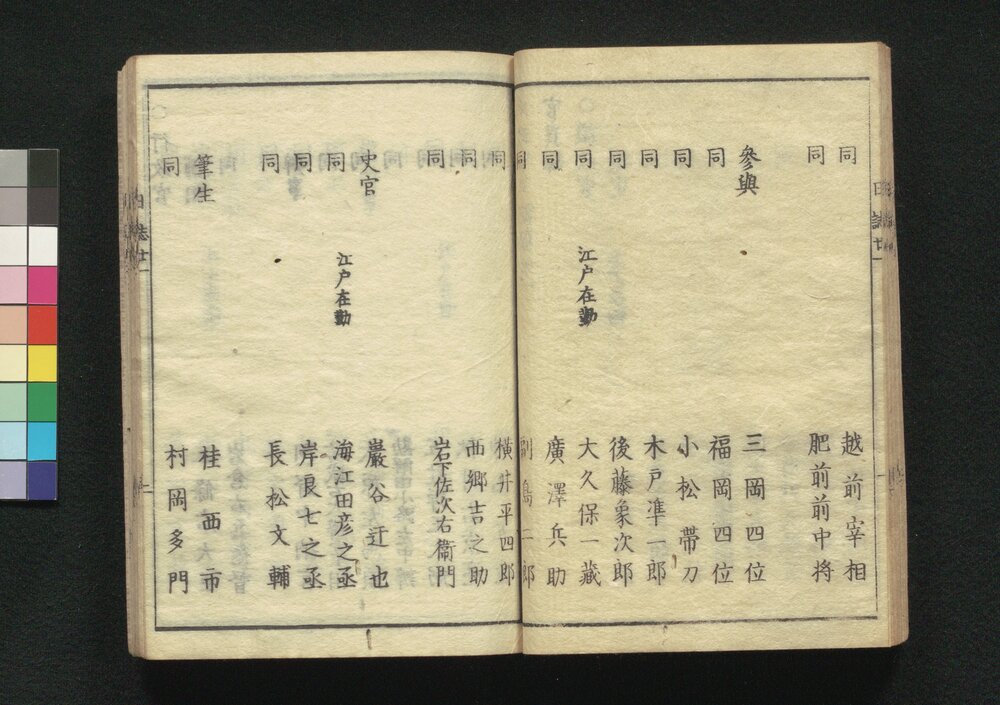 同 越前宰相
同 肥前前中将
參與 三岡四位
同 福岡四位
同 小松帶刀
同 木戸準一郎
同 後藤象次郎
同 江戸在勤 大久保一藏
同 廣澤兵助
同 副島二郎
同 横井平四郎
同 西郷吉之助
同 岩下佐次右衞門
史官 巖谷迂也
同 江戸在勤 海江田彦之丞
同 岸良七之丞
同 長松文輔
筆生 桂西市
同 村岡多門